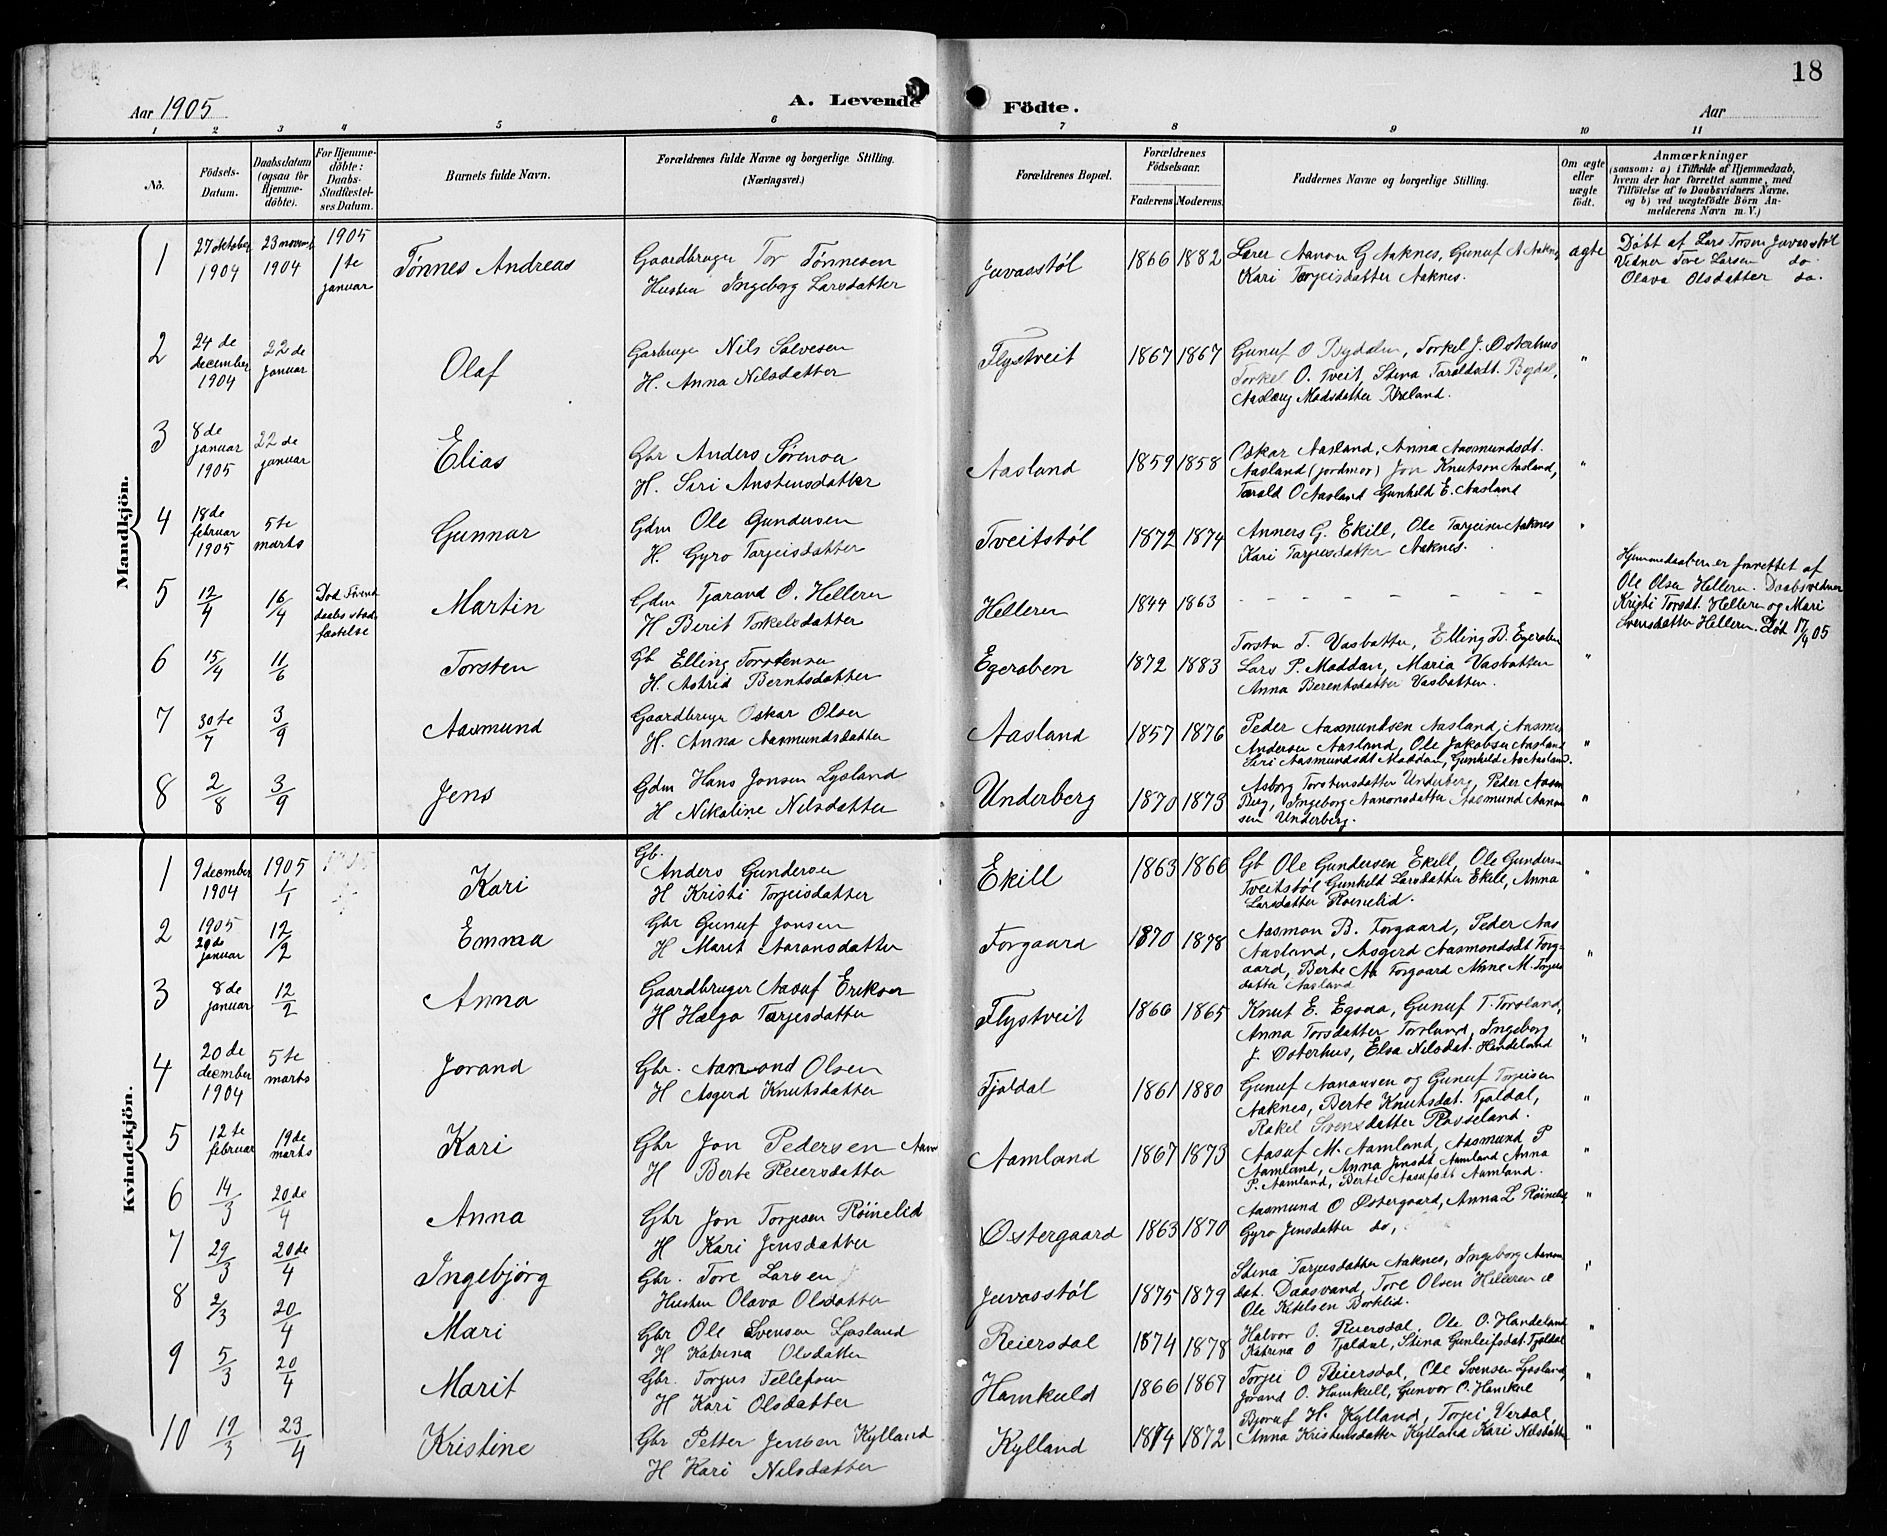 18
Aar 1905
A. Levende Födte.
Aar
1 2 3 4 5 6 7 8 9 10 11
No.
Födsels-Datum.
Daabsdatum (ogsaa för Hjemme-döbte).
For Hjemme-döbte: Daabs-Stadfæstel-ses Datum.
Barnets fulde Navn.
Forældrenes fulde Navne og borgerlige Stilling. (Næringsvei.)
Forældrenes Bopæl.
Forældrenes Födselsaar.
Faderens Moderens
Faddernes Navne og borgerlige Stilling.
Om ægte eller uægte födt.
Anmærkninger
(saasom: a) i Tilfælde af Hjemmedaab, hvem der har forrettet samme, med Tilföielse af to Daabsvidners Navne, og b) ved uægtefödte Börn An-melderens Navn m. V.)
Mandkjön.
1 27 oktober 1904 23 novemb 1904 1905 1te januar Tønnes Andreas
Gaardbruger Tor Tønnesen
Hustru Ingeborg Larsdatter
Juvasstøl 1866 1882
Lærer Aanon G Aaknes, Gunuf A Aaknes
Kari Tarjeisdatter Aaknes.
ægte
Døbt af Lars Torsen Juvasstøl
Vidner Tore Larsen do.
Olava Olsdatter do.
2 24de december 1904 22de januar Olaf
Garbruger Nils Salvesen
H. Anna Nilsdatter
Flystveit 1867 1867
Gunuf O Bygdalen, Torkel J. Østerhus
Torkel O. Tveit, Stina Taraldsdt. Bygdal,
Aaslaug Madsdatter
"
3 8de januar 1905 22de januar Elias
Gbr Anders Sørensen
H. Siri Anstensdatter
Aasland 1859 1858
Oskar Aasland, Anna Aasmundsdt.
Aasland (jordmor) Jon Knutson Aasland,
Tarald O Aasland Gunhild E. Aasland
"
4 18de februar 1905 5te marts Gunnar
Gdm Ole Gundersen
H. Gyro Tarjeisdatter
Tveitstøl 1872 1874
Anners G. Ekill, Ole Tarjeisen Aaknes
Kari Tarjeisdatter Aaknes.
"
5 12/4 16/4 Død før end daabs stadfæstelse Martin
Gdm Tjarand O. Helleren
H Berit Torkelsdatter
Helleren 1844 1863
- - - - - - -
Hjemmedaaben er forrettet af
Ole Olsen Helleren. Daabsvidner
Kristi Torsdt. Helleren og Mari
Svensdatter Helleren. Død 17/4 05
6 15/4 11/6 Torsten
Gb Elling Torstensen
H. Astrid Berntsdatter
Egeraben 1872 1883
Torsten T. Vasbatten, Elling B. Egeraben
Lars P. Moddan, Maria Vasbatten
Anna Berentsdatter Vasbatten.
"
7 30te/7 3/9 Aasmund
Gaardbruger Oskar Olsen
H. Anna Aasmundsdatter
Aasland 1857 1876
Peder Aasmundsen Aasland, Aasmu
Andersen Aasland, Ole Jakobsen Aasland
Siri Aasmundsdt Moddan, Gunhild Aasland.
"
8 2/8 3/9 Jens
Gdm Hans Jonsen Lysland
H Nikoline Nilsdatter
Underberg 1870 1873
Asborg Torstensdatter Underberg, Peder Aasm
Berg, Ingeborg Aanonsdatter Aasmund Aanon
sen Underberg.
"
Kvindekjön.
1 9 december 1904 1905 1/1 Kari
Gb. Anders Gundersen
H Kristi Torjeisdatter
Ekill 1863 1866
Gb Ole Gundersen Ekill, Ole Gunders
Tveitstøl Gunhild Larsdatter Ekill, Anna
Larsdatter Røinelid.
"
2 1905 29de januar 12/2 Emma
Gbr Gunuf Jonsen
H Marit Aaronsdatter
Forgaard 1870 1878
Aasmon B. Forgaard, Peder Aas
Aasland, Asgerd Aasmondsdt Forg-
aard, Berte Aa Forgaard Anne M. Torjus
datter Aasland
"
3 8de januar 12/2 Anna
Gaardbruger Aasuf Eriksen
H Helga Tarjesdatter
Flystveit 1866 1865
Knut E. Egsaa, Gunuf T. Torsland,
Anna Torsdatter Torsland, Ingeborg
J. Østerhus, Elsa Nilsdat. Hindeland
"
4 20de december 1904 5te marts Jorand
Gbr. Aamond Olsen
H Asgerd Knutsdatter
Fjaldal 1861 1880
Gunuf Aanonsen og Gunuf Torjeisen
Aaknes, Berte Knutsdat. Fjaldal,
Rakel Svensdatter Rosseland.
"
5 12te februar 19de marts Kari
Gbr Jon Pedersen Aaml
H Berte Reiersdatter
Aamland 1867 1873
Aasuf M. Aamland, Aasmund P
Aamland, Anna Jensdt Aamland Anna
P. Aamland, Berte Aasufsdt Aamland.
"
6 14/3 20de/4 Anna
Gbr Jon Torjesen Røinelid
H Kari Jensdatter
Østergaard 1863 1870
Aasmund O Østergaard, Anna L Røinelid
Gyro Jensdatter do,
"
7 29/3 20de/4 Ingebjørg
Gbr. Tore Larsen
Hustru Olava Olsdatter
Juvasstøl 1875 1879
Stina Tarjeisdatter Aaknes, Ingeborg Aanon
dat. Daasvand, Tore Olsen Helleren &
Ole Kitelsen Borklid.
"
8 2/3 20/4 Mari
Gbr Ole Svensen Ljosland
H Katrina Olsdatter
Reiersdal 1874 1878
Halvor O. Reiersdal, Ole O. Handeland
Katrina O Fjaldal, Stina Gunleifsdat. Fjaldal
"
9 5/3 20/4 Marit
Gbr. Torjus Tollefsen
H Kari Olsdatter
Hamkuld 1866 1867
Torjei O Reiersdal, Ole Svensen Ljosland,
Jorand O. Hamkull, Gunvor O. Hamkul
"
10 19/3 23/4 Kristine
Gbr Petter Jensen Kylland
H Kari Nilsdatter
Kylland 1874 1872
Bjoruf H. Kylland, Torjei Verdal,
Anna Kristensdatter Kylland Kari Nilsdatter
"